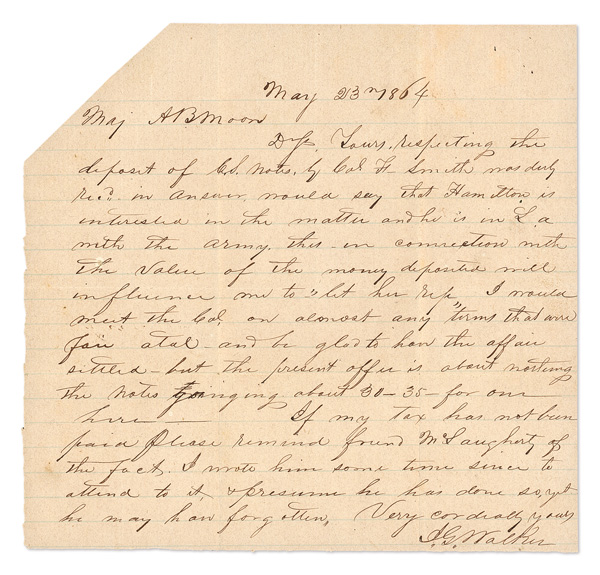 May 23rd 1864
Maj A B Moon
Dr Sr. Yours respecting the
deposit of C.S. Notes, by Col. H Smith was duly
recd. in answer would say that Hamilton is
interested in the matter and he is in La
with the army. this in connection with
the value of the money deposited will
influence me to "let her rip" I would
meet the Col. on almost any terms that were
fair atal - and be glad to have the affair
settled - but the present offer is about nothing
the notes ranging about 30 - 35 - for one
here If my tax has not been
paid Please remind friend McGaugherty of
the fact. I wrote him some time since to
attend to it, & presume he has done so, yet
he may have forgotten, Very cordially yours
J.G. Walker